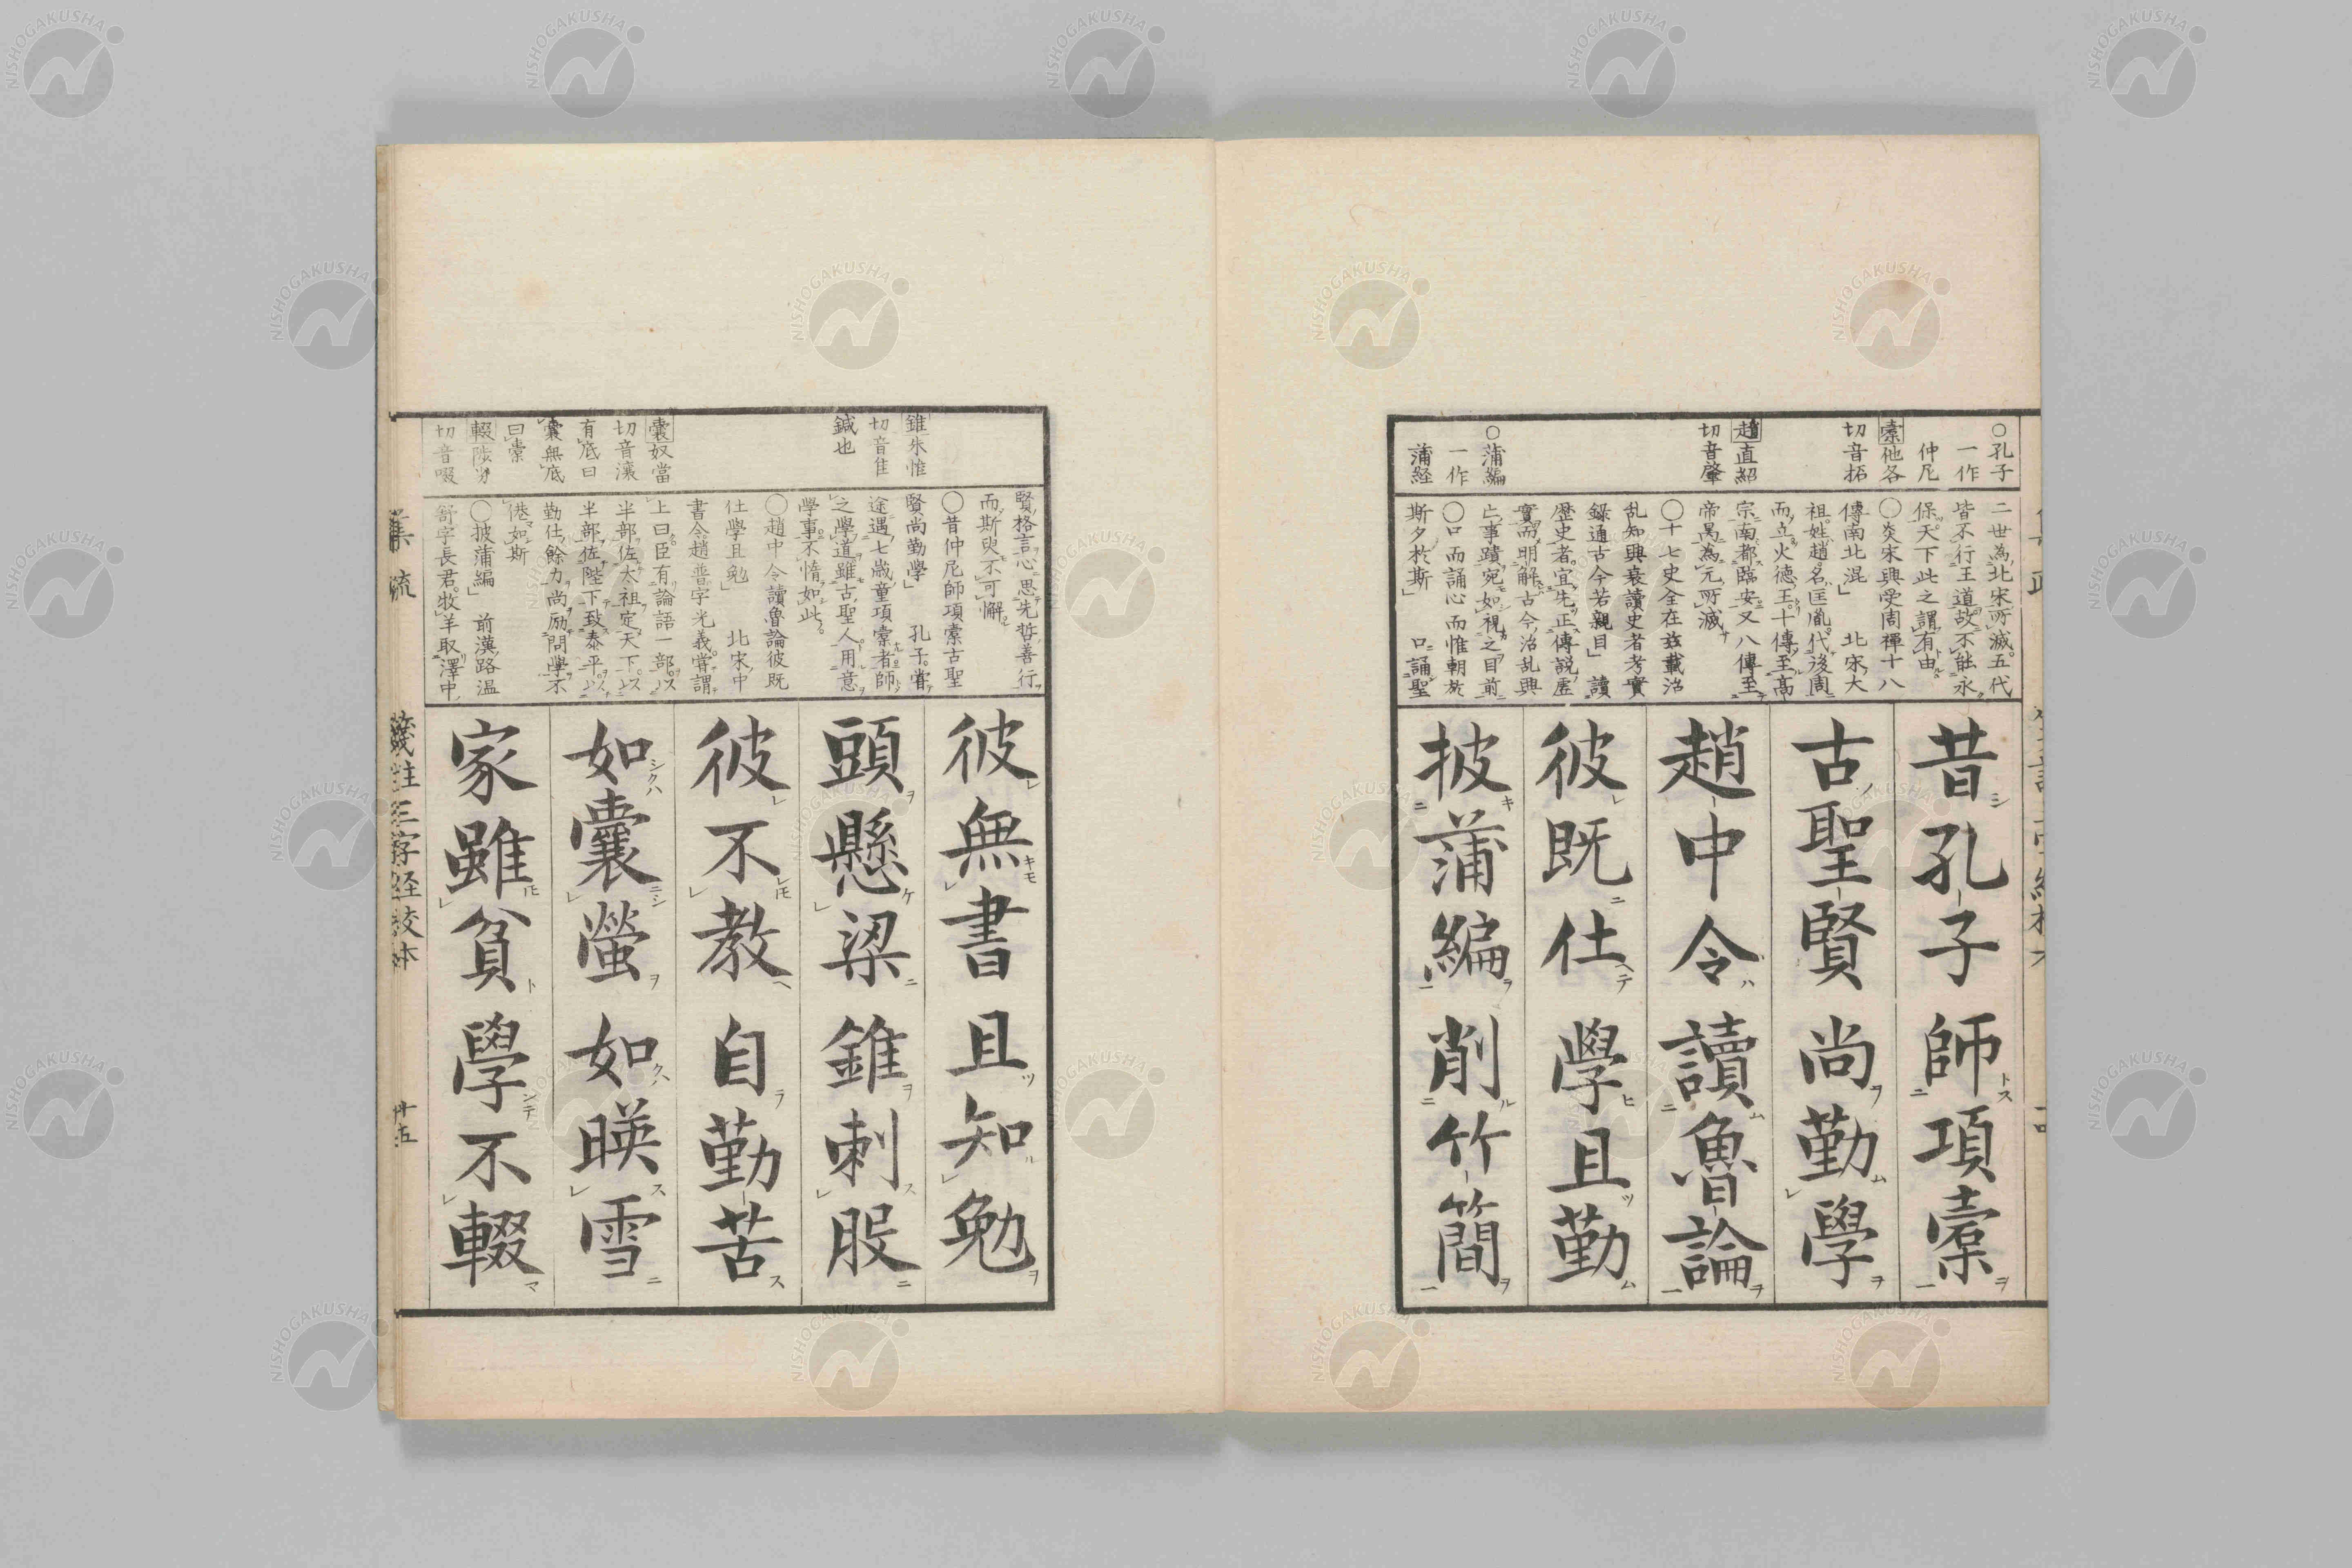 ○孔子
一作
仲尼
橐他各
切音拓
趙直紹
切音肇
○蒲編
一作
蒲経
二世為北宋所滅五代
皆不行王道故不能永
保天下此之謂有由
○炎宋興受周禅十八
傳南北混」 北宋大
祖姓趙名匡胤代後周
而立火德王十傳至高
宗南都臨安又八傳至
帝昺為元所滅
○十七史全在玆載治
乱知興衰讀史者考實
録通古今若親目」 讀
歴史者宜先正傳説歴
實而明解古今治乱興
亡事蹟宛如視之目前
○口而誦心而惟朝於
斯夕於斯」 口誦聖
昔孔子 師項橐
古聖賢 尚勤學
趙中令 讀魯論
彼既仕 學且勤
披蒲編 削竹簡
錐朱惟
切音隹
鍼也
囊奴當
切音瀼
有底曰
囊無底
曰橐
輟陟劣
切音啜
賢格言心思先哲善行
而斯臾不可懈
○昔仲尼師項橐古聖
賢尚勤學」 孔子嘗
途遇七歳童項橐者師
之學道雖古聖人用意
學事不惰如此
○趙中令讀魯論彼既
仕學且勉」 北宋中
書令趙普字光義嘗謂
上曰臣有論語一部以
半部佐太祖定天下以
半部佐陛下致泰平以
勤仕餘力尚励問學不
倦如斯
○披蒲編」 前漢路温
舒字長君牧羊取澤中
彼無書 且知勉
頭懸梁 錐刺股
彼不教 自勤苦
如囊螢 如暎雪
家雖貧 學不輟
三字経校本
十五
NISHOGAKUSHA